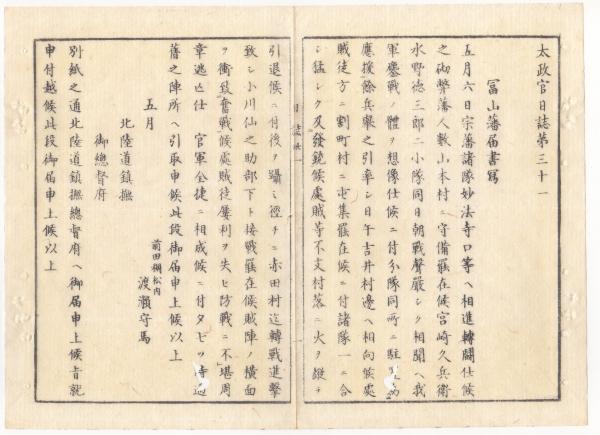 太政官日誌第三十一
冨山藩届書寫
五月六日宗藩諸隊妙法寺口等ヘ相進轉闘仕候
之砌弊藩人數山本村ニ守備罷在候宮崎久兵衛
水野德三郎二小隊同日朝戰聲嚴シク相聞ヘ我
軍鏖戰ノ體ヲ想像仕候ニ付分隊同所ニ駐
應援餘兵擧之引率シ日午吉井村邊ヘ相向候處
賊徒方ニ割町村ニ屯集罷在候ニ付諸隊一ニ合
シ猛シク及發銃候處賊等不支村落ニ火ヲ縱チ
引退候ニ付後ヲ躡シ徑チニ赤田村迄轉戰進擊
致シ小川仙之助部下ト接戰罷在候賊陣ノ横面
ヲ衝致奮戰候處賊徒屢利ヲ失ヒ防戰ニ不堪周
章逃亡仕 官軍全捷ニ相成候ニ付夕七ッ時過
舊之陣所ヘ引取申候此段御届申上候以上
五月
前田稠松内
渡瀨守馬
北陸道鎮撫
御總督府
別紙之通北陸道鎮撫總督府ヘ御届申上候旨就
申付越候此段御届申上候以上
日誌